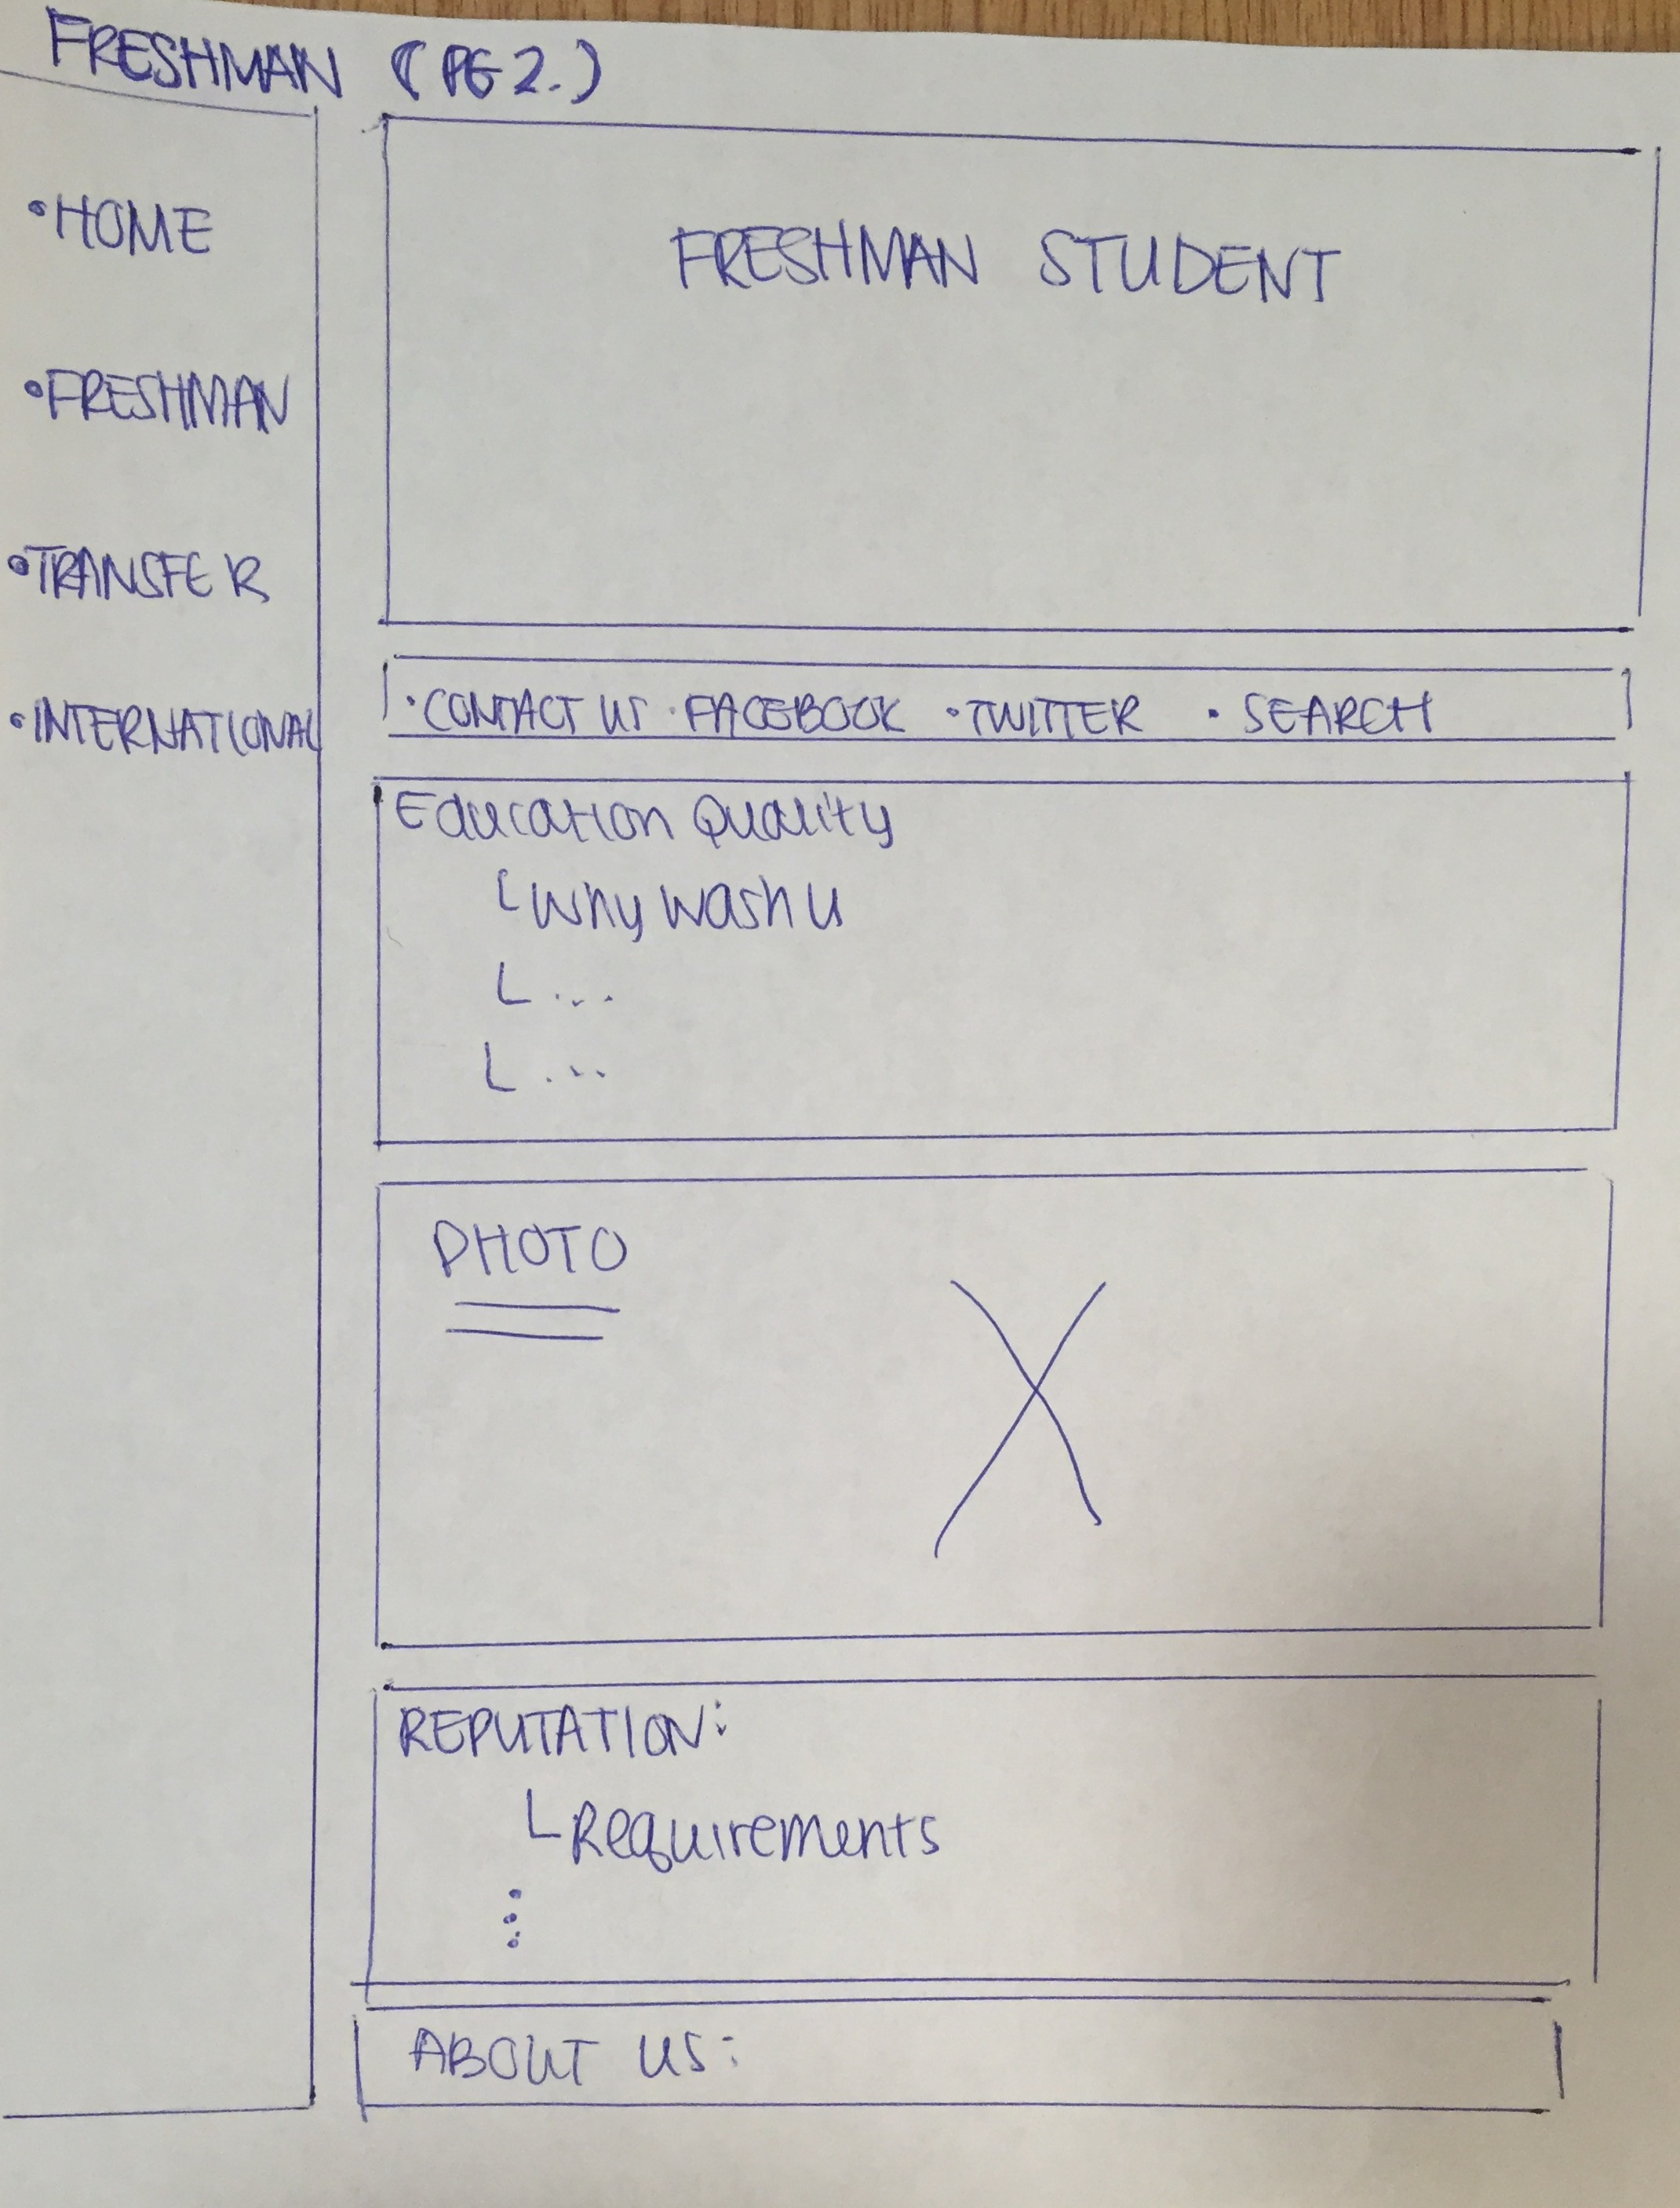 FRESHMAN (PG 2.)
•HOME
•FRESHMAN
•TRANSFER
•INTERNATIONAL
FRESHMAN STUDENT
•CONTACT US •FACEBOOK •TWITTER • SEARCH
Education Quality
Why wash u
...
...
PHOTO
REPUTATION:
Requirements
ABOUT US: